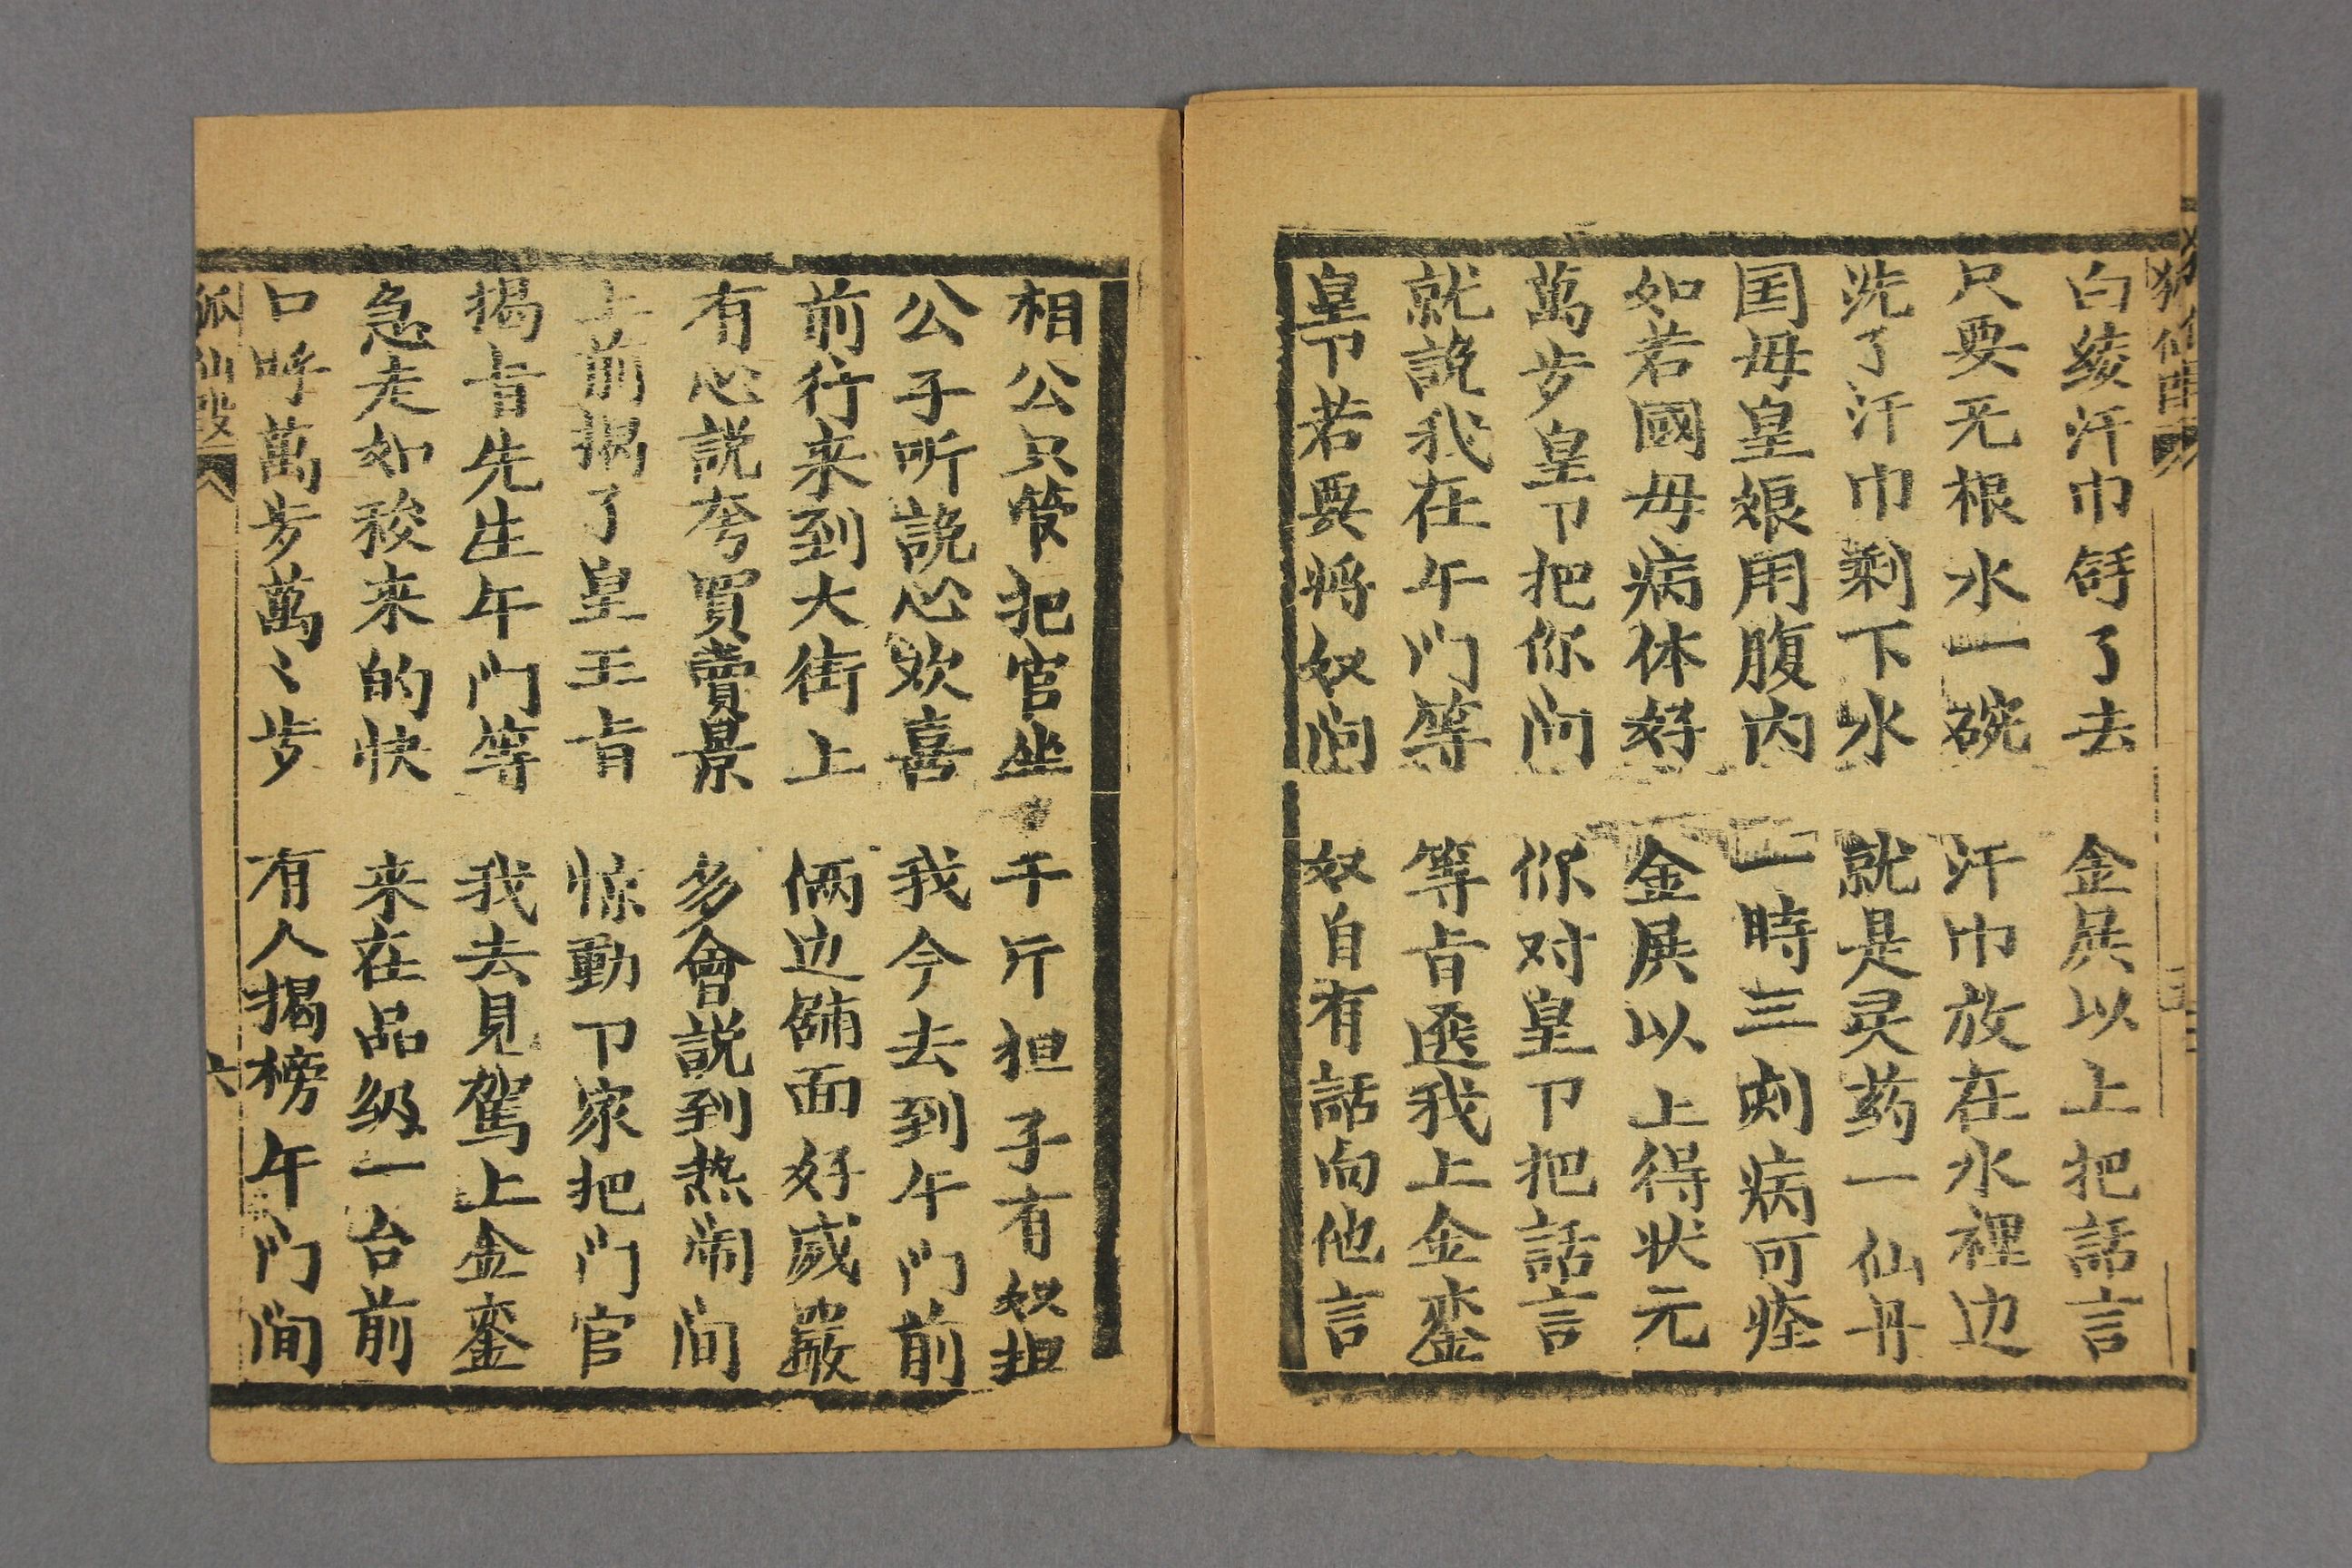 白绫汗巾舒了去　金展以上把話言
只要无根水一碗　汗巾放在水裡边
洗了汗巾剩下水　就是灵药一仙丹
国母皇娘用腹内　一時三刻病可痊
如若國母病体好　金展以上得状元
萬岁皇卩把你问　你对皇卩把話言
就説我在午门等　等旨宣我上金銮
皇卩若要将奴问　奴自有話向他言
相公只管把官坐　千斤担子有奴担
公子听説心欢喜　我今去到午门前
前行来到大街上　俩边舖面好威嚴
有心説夸買賣景　多會説到热闹间
上前揭了皇王旨　惊動卩家把门官
揭旨先生午门等　我去見駕上金銮
急走如梭来的快　来在品级一台前
口呼萬岁萬〻岁　有人揭榜午门间
狐仙段
六